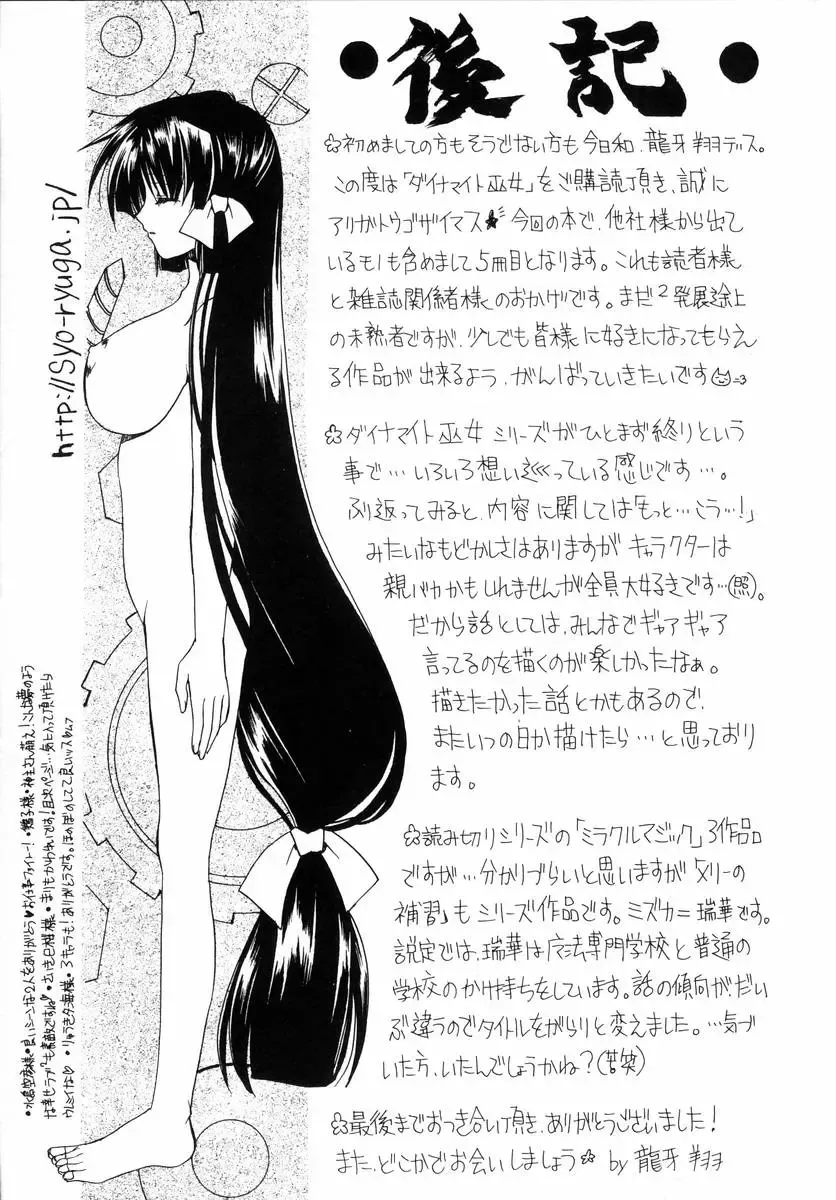 ・後記・
☆初めましての方もそうでない方も今日和、龍牙翔ヲデス。
この度は「ダイナマイト巫女」をご購読頂き、誠に
アリガトウゴザイマス★今回の本で、他社様から出て
いるモノも含めまして5冊目となります。これも読者様
と雑誌関係者様のおかげです。まだ2発展途上
の未熟者ですが、少しでも皆様に好きになってもらえ
る作品が出来るよう、がんばっていきたいです
☆ダイナマイト巫女シリーズがひとまず終りという
事で…いろいろ想い巡っている感じです…。
ふり返ってみると、内容に関しては「もっと…こう…!」
みたいなもどかしさはありますがキャラクターは
親バカかもしれませんが全員大好きです…(照)。
だから話としては、みんなでギャアギャア
言ってるのを描くのが楽しかったなぁ。
描きたかった話とかもあるので、
またいつの日か描けたら…と思っており
ます。
☆読み切りシリーズの「ミラクルマジック」3作品
ですが…分かりづらいと思いますが「メリーの
補習」もシリーズ作品です。ミズカ=瑞華です。
説定では、瑞華は魔法専門学校と普通の
学校のかけ持ちをしています。話の傾向がだい
ぶ違うのでタイトルをがらりと変えました。…気づ
いた方、いたんでしょうかね?(苦笑)
☆最後までおつき合い頂き、ありがとうございました!
また、どこかでお会いしましょう☆ by 龍牙 翔ヲ
http://syo-ryuga.jp/
良いシーンな2人をありがとう♥お仕事ファイトー!
は幸せラブ2も素敵ですね♡
ほのぼのしてて良いッス